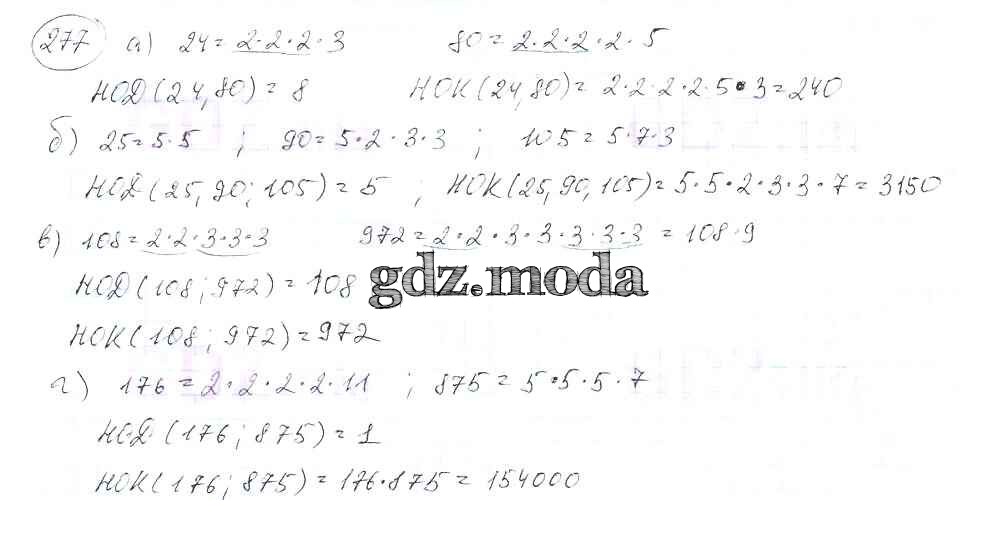 277 а) 24 = 2·2·2·3 80 = 2·2·2·2·5
НОД(24,80) = 8 НОК(24,80) = 2·2·2·2·5·3 = 240
б) 25 = 5·5 ; 90 = 5·2·3·3 ; 105 = 5·7·3
НОД(25,90;105) = 5 ; НОК(25,90,105) = 5·5·2·3·3·7 = 3150
в) 108 = 2·2·3·3·3 972 = 2·2·3·3·3·3·3 = 108·9
НОД(108;972) = 108
gdz.moda
НОК(108;972) = 972
г) 176 = 2·2·2·2·11 ; 875 = 5·5·5·7
НОД(176;875) = 1
НОК(176;875) = 176·875 = 154000